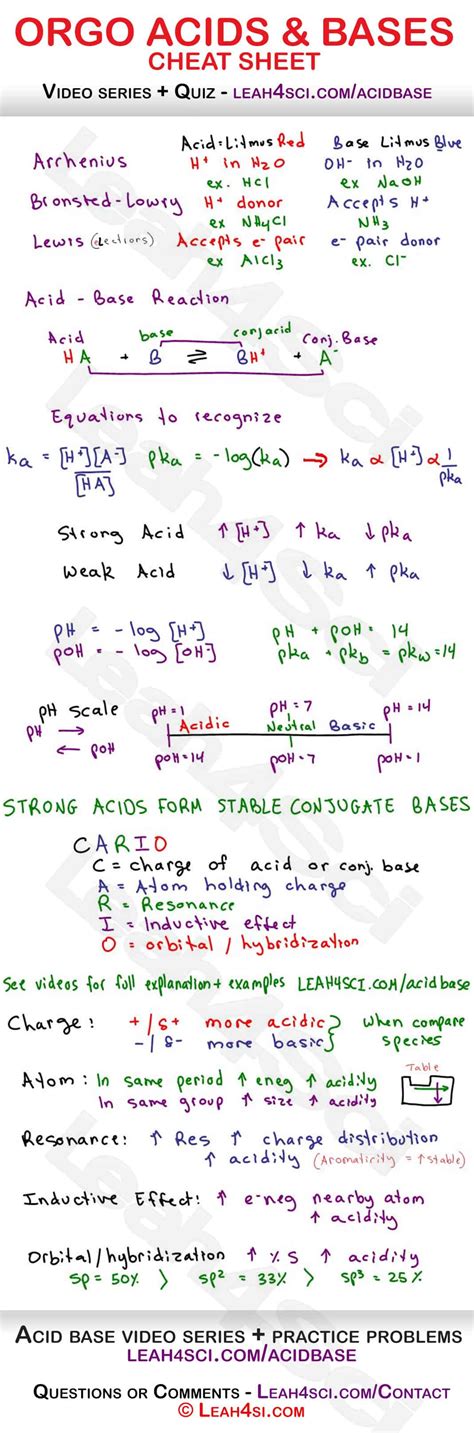 ORGO ACIDS & BASES
CHEAT SHEET
VIDEO SERIES + QUIZ - LEAH4SCI.COM/ACIDBASE
Acid=Litmus Red Base Litmus Blue
Arrhenius H⁺ in H₂O OH- in H₂O
ex. HCl ex NaOH
Bronsted-Lowry H⁺ donor Accepts H⁺
ex NH₄Cl NH₃
Lewis (electrons) Accepts e- pair e- pair donor
ex AlCl₃ ex. Cl⁻
Acid-Base Reaction
Acid base conj acid Conj. Base
HA + B ⇌ BH⁺ + A⁻
Equations to recognize
ka = [H⁺][A⁻]/[HA] pka = -log(ka) → ka α [H⁺] α 1/pka
Strong Acid ↑[H⁺] ↑ka ↓pka
Weak Acid ↓[H⁺] ↓ka ↑pka
pH = -log [H⁺] pH + pOH = 14
pOH = -log [OH⁻] pka + pkb = pkw=14
pH Scale pH=1 pH=7 pH=14
pH → Acidic Neutral Basic
← pOH pOH=14 pOH=7 pOH=1
STRONG ACIDS FORM STABLE CONJUGATE BASES
CARIO
C = charge of acid or conj. base
A = Atom holding charge
R = Resonance
I = Inductive effect
O = orbital / hybridization
See videos for full explanation + examples LEAH4SCI.COM/acidbase
Charge: +/δ+ more acidic } when compare
-/δ- more basic } species
Table
Atom: In same period ↑eneg ↑acidity
In same group ↑size ↑acidity
Resonance: ↑Res ↑ charge distribution
↑ acidity (Aromaticity = ↑stable)
Inductive Effect: ↑ e-neg nearby atom
↑ acidity
Orbital/hybridization ↑%S ↑ acidity
sp=50% > sp²=33% > sp³=25%
ACID BASE VIDEO SERIES + PRACTICE PROBLEMS
LEAH4SCI.COM/ACIDBASE
QUESTIONS OR COMMENTS - LEAH4SCI.COM/CONTACT
© LEAH4SI.COM
Leah4Sci
Leah4Sci
Leah4Sci
Leah4Sci